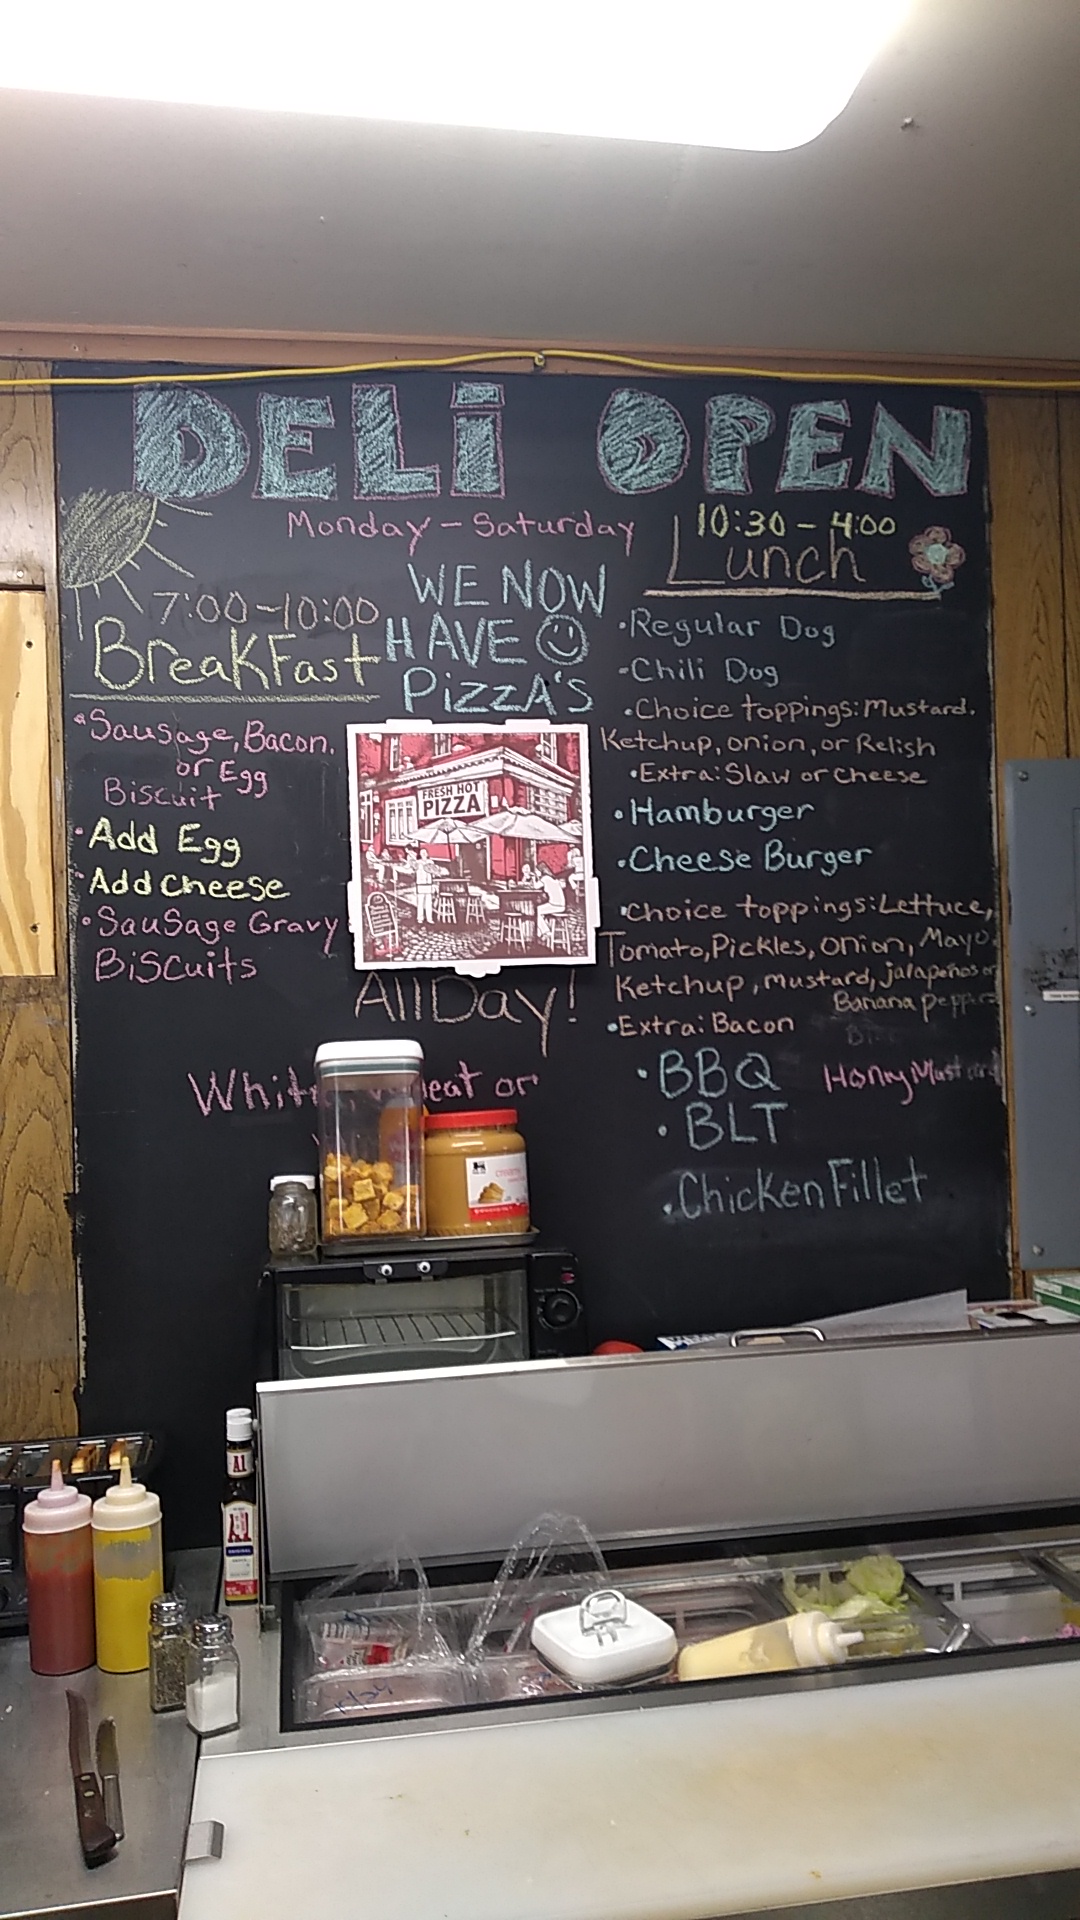 DELi OPEN
Monday - Saturday
7:00-10:00
BreaKFast
•Sausage, Bacon,
or Egg
Biscuit
•Add Egg
•Add cheese
•SauSage Gravy
BiScuits
WE NOW
HAVE
PizzA'S
FRESH HOT
PIZZA
All Day!
or
10:30 - 4:00
Lunch
•Regular Dog
•Chili Dog
•Choice toppings: Mustard,
Ketchup, onion, or Relish
•Extra: Slaw or cheese
•Hamburger
•Cheese Burger
•Choice toppings: Lettuce,
Tomato, Pickles, onion, Mayo,
Ketchup, mustard, jalapeños or
Banana peppers
•Extra: Bacon
•BBQ
Honey Mustard
•BLT
•Chicken Fillet
A1
A1
ORIGINAL